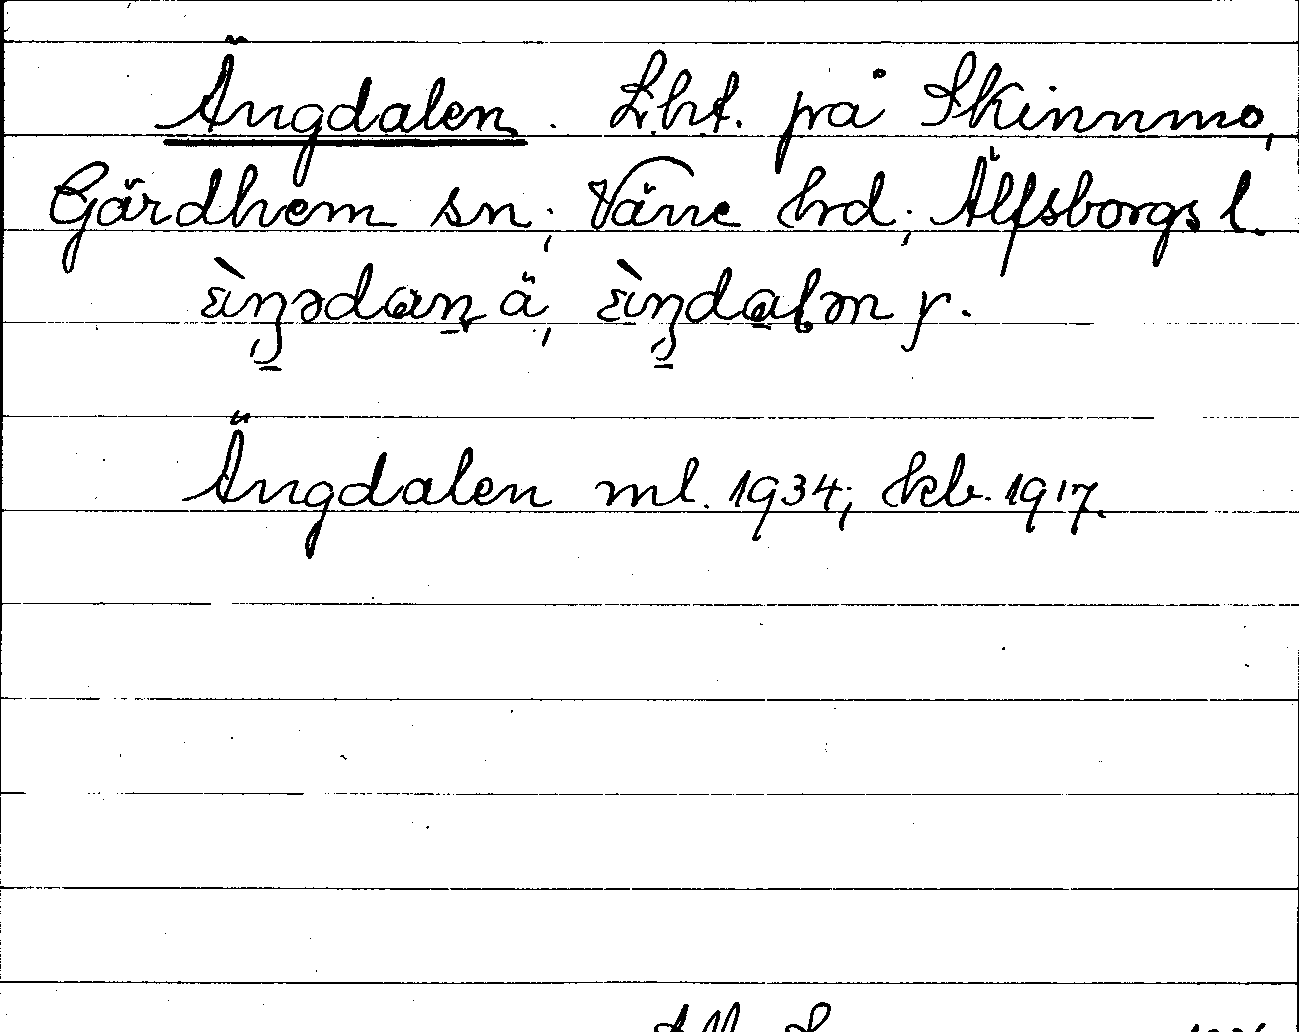 Ängdalen. Lht. på Skinnmo,
Gärdhem sn; Väne hrd; Älfsborgs l.
ä, y.
Ängdalen ml. 1934; kb. 1917.